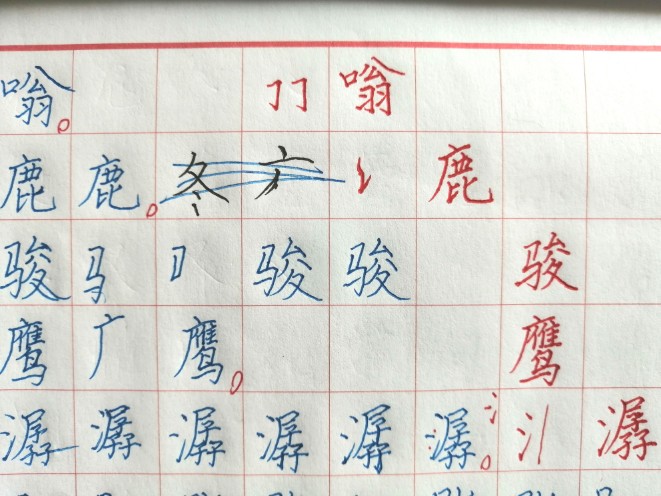 嗡。 嗡
鹿 鹿。 冬 鹿
骏 骏 骏 骏
鹰 广 鹰。 鹰
潺 潺 潺 潺 潺 潺。 氵 潺